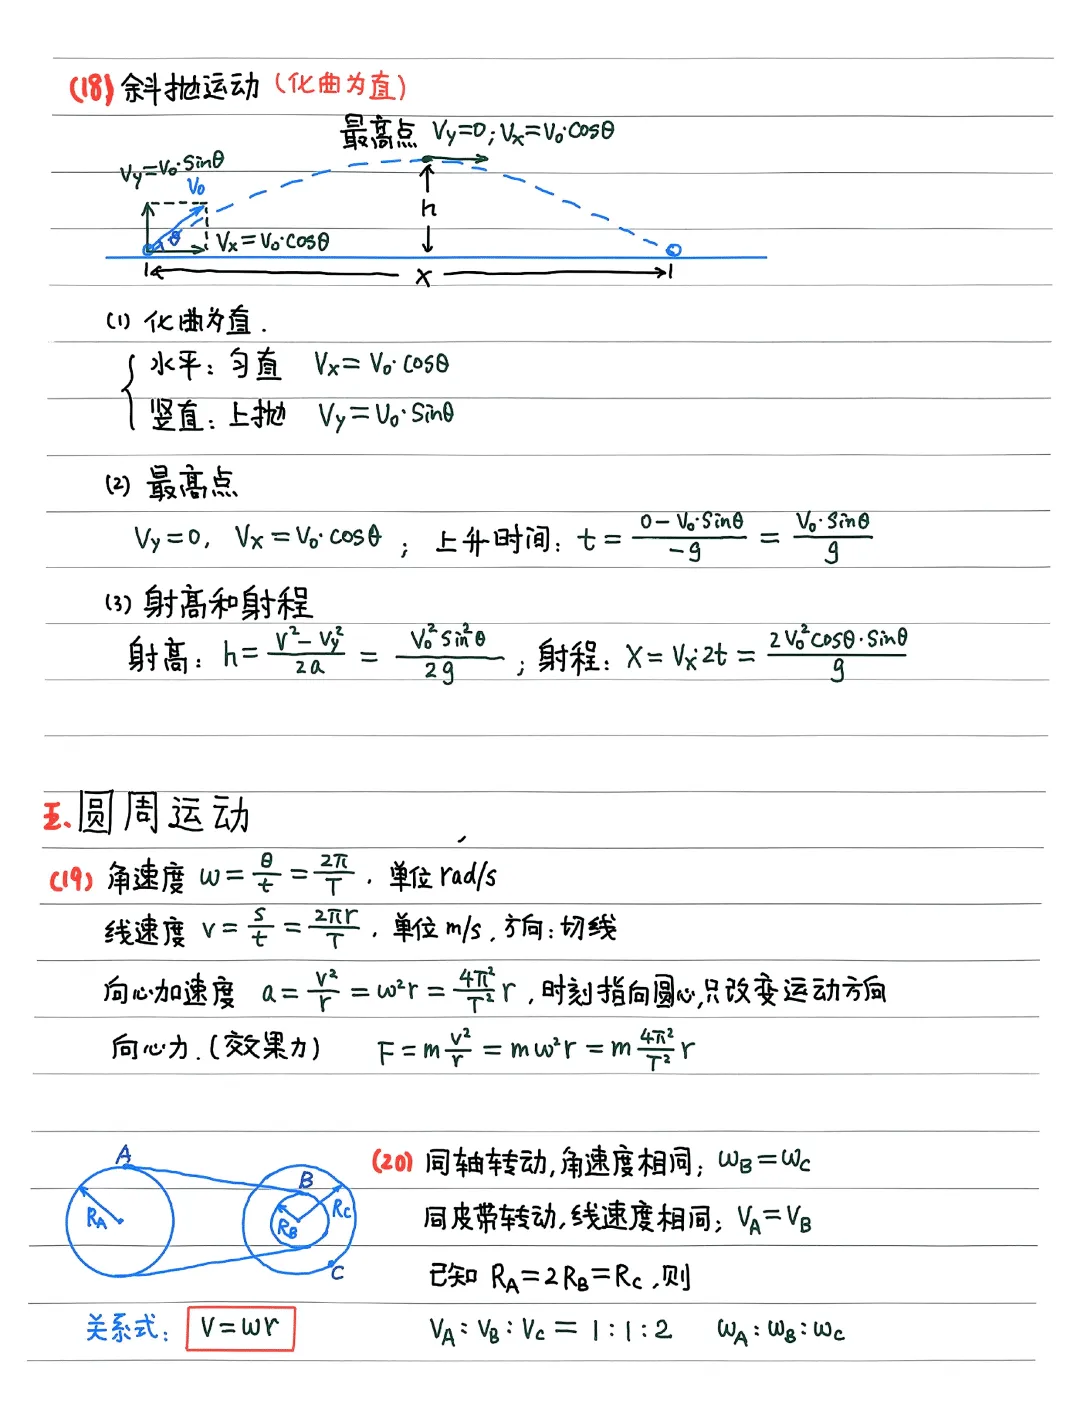 (18) 斜抛运动 (化曲为直)
最高点 Vy=0; Vx=V₀·cosθ
Vy=V₀·sinθ
V₀
θ
Vx=V₀·cosθ
h
x
(1) 化曲为直.
水平: 匀直 Vx=V₀·cosθ
竖直: 上抛 Vy=V₀·sinθ
(2) 最高点
Vy=0, Vx=V₀·cosθ; 上升时间: t=(0-V₀·sinθ)/(-g)=(V₀·sinθ)/g
(3) 射高和射程
射高: h=(V²-Vy²)/2a=(V₀²sin²θ)/2g; 射程: X=Vx·2t=(2V₀²cosθ·sinθ)/g
五. 圆周运动
(19) 角速度 ω=θ/t=2π/T. 单位 rad/s
线速度 v=s/t=2πr/T. 单位 m/s. 方向: 切线
向心加速度 a=v²/r=ω²r=(4π²/T²)r, 时刻指向圆心,只改变运动方向
向心力.(效果力) F=m v²/r=mω²r=m(4π²/T²)r
A
B
RA
RB
Rc
C
(20) 同轴转动,角速度相同; ωB=ωc
同皮带转动,线速度相同; VA=VB
已知 RA=2RB=Rc,则
关系式: V=ωr
VA:VB:Vc=1:1:2 ωA:ωB:ωc